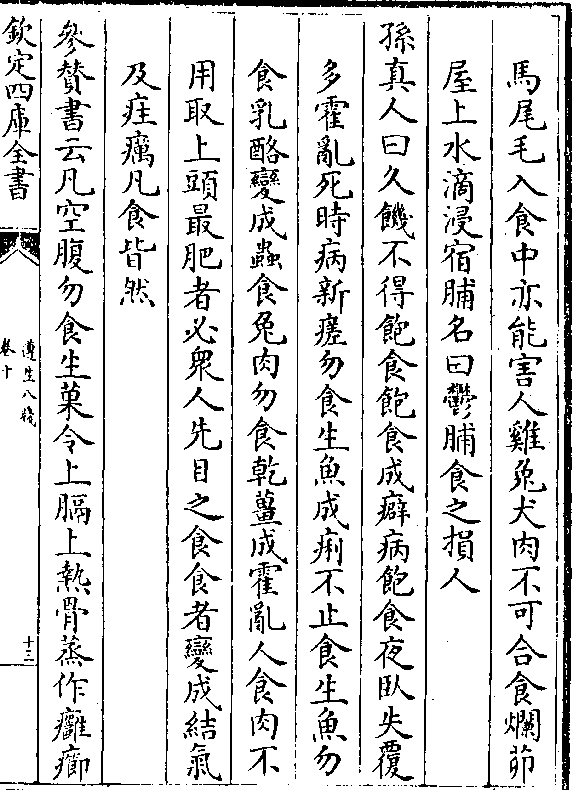 馬尾毛入食中亦能害人雞兔犬肉不可合食爛茆
屋上水滴浸宿脯名曰鬱脯食之損人
孫真人曰久饑不得飽食飽食成癖病飽食夜臥失覆
多霍亂死時病新瘥勿食生魚成痢不止食生魚勿
食乳酪變成蟲食兔肉勿食乾薑成霍亂人食肉不
用取上頭最肥者必衆人先目之食食者變成結氣
及疰癘凡食皆然
參賛書云凡空腹勿食生菓令上膈上熱骨蒸作癰癤
欽定四庫全書
遵生八牋
卷十
十三